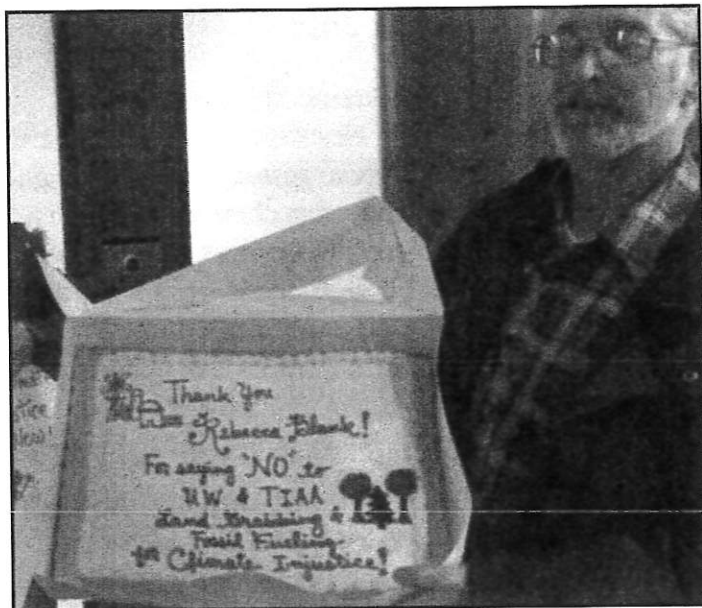 Thank You
Rebecca Blank!
For saying "NO" to
UW & TIAA
Land Grabbing &
Fossil Fueling
for Climate Injustice!